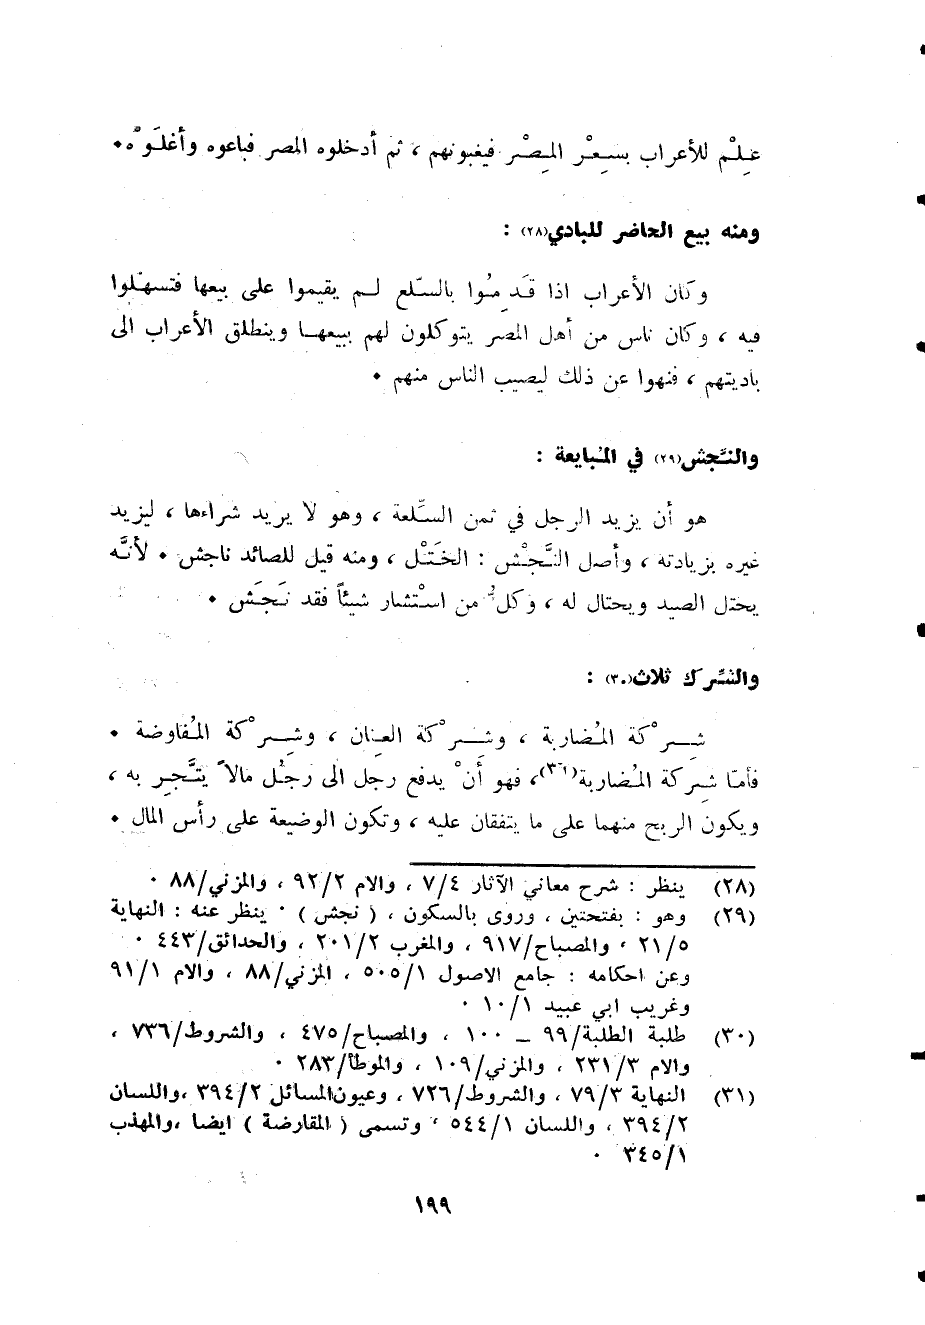 عِلْم للأعراب بسِعْر المِصْر فيغبونهم ، ثم أدخلوه المصر فباعوه وأغلَوْه .
ومنه بيع الحاضر للبادي(٢٨) :
وكان الأعراب اذا قَدِمُوا بالسّلع لم يقيموا على بيعها فتسهّلوا
فيه ، وكان ناس من أهل المصر يتوكلون لهم ببيعها وينطلق الأعراب الى
باديتهم ، فنهوا عن ذلك ليصيب الناس منهم .
والنَّجش(٢٩) في المُبايعة :
هو أن يزيد الرجل في ثمن السِّلعة ، وهو لا يريد شراءها ، ليزيد
غيره بزيادته ، وأصل النَّجْش : الخَتْل ، ومنه قيل للصائد ناجش . لأنَّه
يختل الصيد ويحتال له ، وكلُّ من استْشار شيئاً فقد نَجَش .
والشِّرك ثلاث(٣٠) :
شِرْكة المُضاربة ، وشِرْكة العِنان ، وشِرْكة المُفاوضة .
فأمّا شِركة المُضاربة(٣١)، فهو أنْ يدفع رجل الى رجُل مالاً يتَّجِر به ،
ويكون الربح منهما على ما يتفقان عليه ، وتكون الوضيعة على رأس المال .
(٢٨) ينظر : شرح معاني الآثار ٧/٤ ، والام ٩٢/٢ ، والمزني/٨٨ .
(٢٩) وهو : بفتحتين ، وروى بالسكون ، ( نجش ) . ينظر عنه : النهاية
٢١/٥ ، والمصباح/٩١٧ ، والمغرب ٢٠١/٢ ، والحدائق/٤٤٣ .
وعن احكامه : جامع الاصول ٥٠٥/١ ، المزني/٨٨ ، والام ٩١/١
وغريب ابي عبيد ١٠/١ .
(٣٠) طلبة الطلبة/٩٩ – ١٠٠ ، والمصباح/٤٧٥ ، والشروط/٧٣٦ ،
والام ٢٣١/٣ ، والمزني/١٠٩ ، والموطأ/٢٨٣ .
(٣١) النهاية ٧٩/٣ ، والشروط/٧٢٦ ، وعيون المسائل ٣٩٤/٢ ،واللسان
٣٩٤/٢ ، واللسان ٥٤٤/١ ، وتسمى ( المقارضة ) ايضا ،والمهذب
٣٤٥/١ .
١٩٩